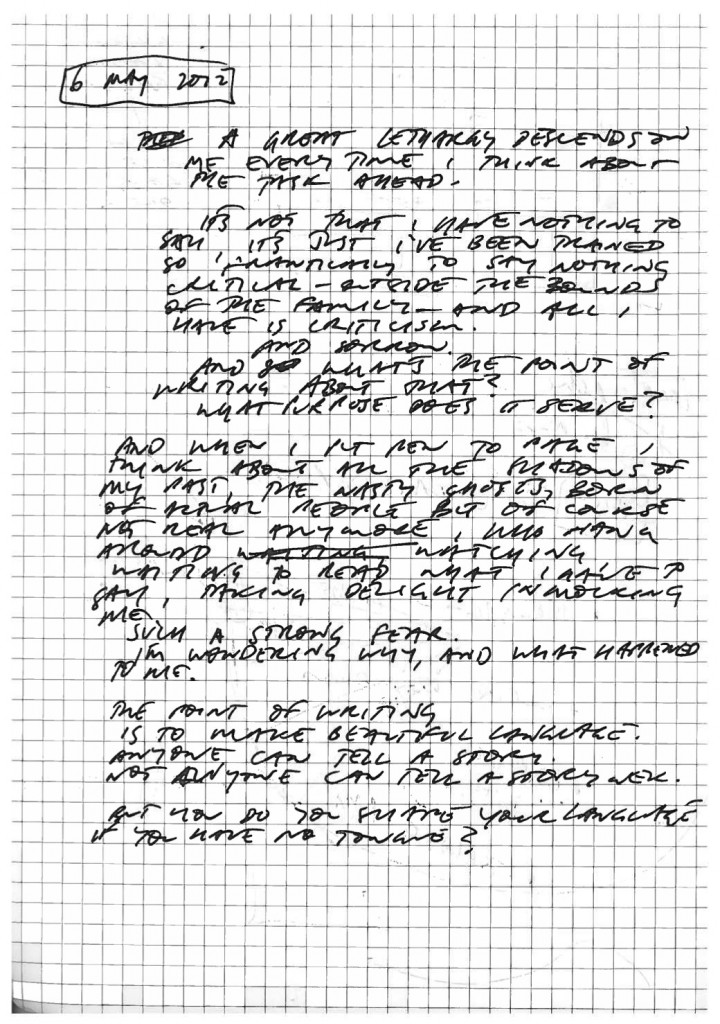 6 MAY 2012
A GREAT LETHARGY DESCENDS ON
ME EVERY TIME I THINK ABOUT
THE TASK AHEAD.
IT'S NOT THAT I HAVE NOTHING TO
SAY, IT'S JUST I'VE BEEN TRAINED
SO FRANTICALLY TO SAY NOTHING
CRITICAL - OUTSIDE THE BOUNDS
OF THE FAMILY - AND ALL I
HAVE IS CRITICISM.
AND SORROW.
AND SO WHAT'S THE POINT OF
WRITING ABOUT THAT?
WHAT PURPOSE DOES IT SERVE?
AND WHEN I PUT PEN TO PAGE I
THINK ABOUT ALL THE SHADOWS OF
MY PAST, THE NASTY GHOSTS, BORN
OF ACTUAL PEOPLE BUT OF COURSE
NOT REAL ANYMORE, WHO HANG
AROUND WAITING WATCHING,
WAITING TO READ WHAT I HAVE TO
SAY, TAKING DELIGHT IN MOCKING
ME.
SUCH A STRONG FEAR.
I'M WANDERING WHY, AND WHAT HAPPENED
TO ME.
THE POINT OF WRITING
IS TO MAKE BEAUTIFUL LANGUAGE.
ANYONE CAN TELL A STORY.
NOT ANYONE CAN TELL A STORY WELL.
BUT HOW DO YOU SHAPE YOUR LANGUAGE
IF YOU HAVE NO TONGUE?